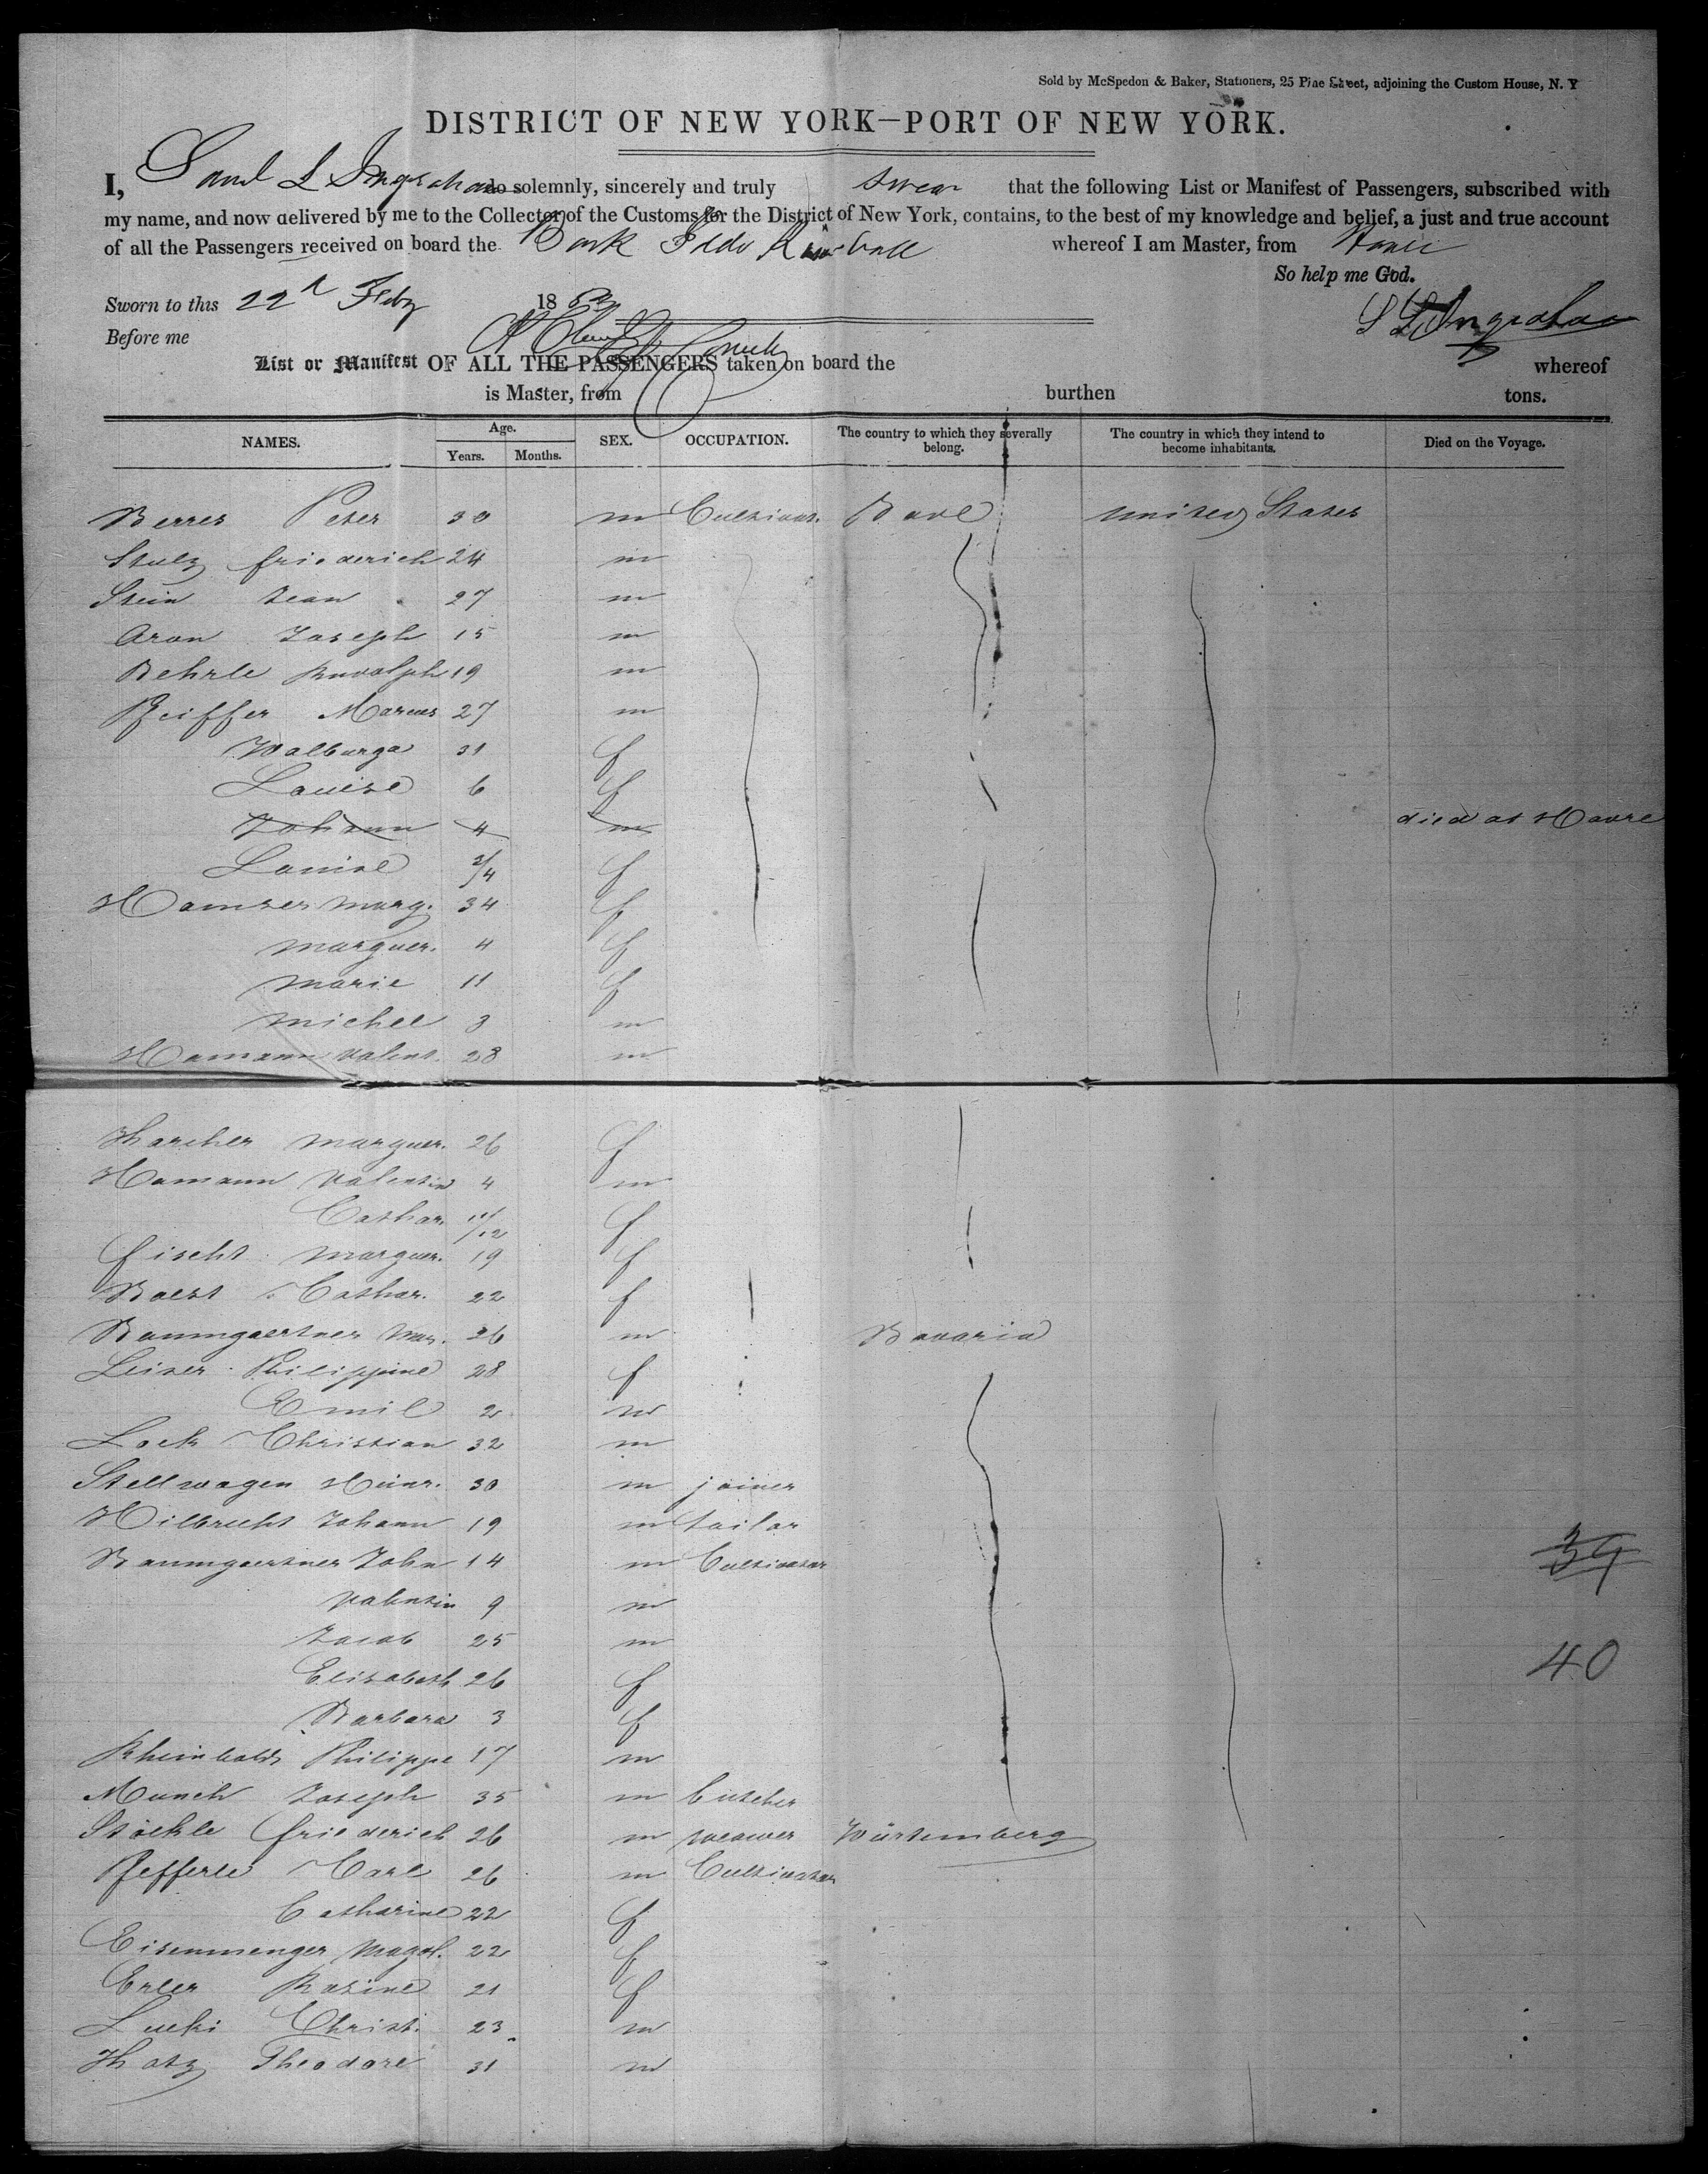 Sold by McSpedon & Baker, Stationers, 25 Pine Street, adjoining the Custom House, N. Y
DISTRICT OF NEW YORK—PORT OF NEW YORK.
I, Saml L Ingraham do solemnly, sincerely and truly swear that the following List or Manifest of Passengers, subscribed with
my name, and now delivered by me to the Collector of the Customs for the District of New York, contains, to the best of my knowledge and belief, a just and true account
of all the Passengers received on board the Bark whereof I am Master, from
So help me God.
Sworn to this 22d Feby 18 S L Ingraham
Before me
List or Manifest OF ALL THE PASSENGERS taken on board the whereof
is Master, from burthen tons.
NAMES. Age. Years. Months. SEX. OCCUPATION. The country to which they severally belong. The country in which they intend to become inhabitants. Died on the Voyage.
Berres Peter 30 m Cultivat. United States
Stulz friederich 24 m
Stein Jean 27 m
Aron Joseph 15 m
Behrle Rudolph 19 m
Pfeiffer Marcus 27 m
Walburga 31 f
Louise 6 f
Johann 4 m died at Havre
Louise 3/4 f
Marg. 34 f
Marguer. 4 f
Marie 11 f
Michel 3 m
Hamann Valent. 28 m
Marguer. 26 f
Hamann Valentin 4 m
Cathar. 11/12 f
fischt Marguer. 19 f
Cathar. 22 f
Baumgaertner Mar. 26 m Bavaria
Leiser Philippine 28 f
Emil 2 m
Lock Christian 32 m
Stellwagen Heinr. 30 m joiner
Hilbrecht Johann 19 m tailor
Baumgaertner John 14 m Cultivator
39
Valentin 9 m
Jacob 25 m
40
Elisabeth 26 f
Barbara 3 f
Rheinboldt Philippe 17 m
Munch Joseph 35 m butcher
Stöckle friederich 26 m weawer Würtemberg
Pfefferle Carl 26 m Cultivator
Catharine 22 f
Eisenmenger Magd. 22 f
Erler Rosine 21 f
Lucki Christ. 23 m
Theodore 31 m